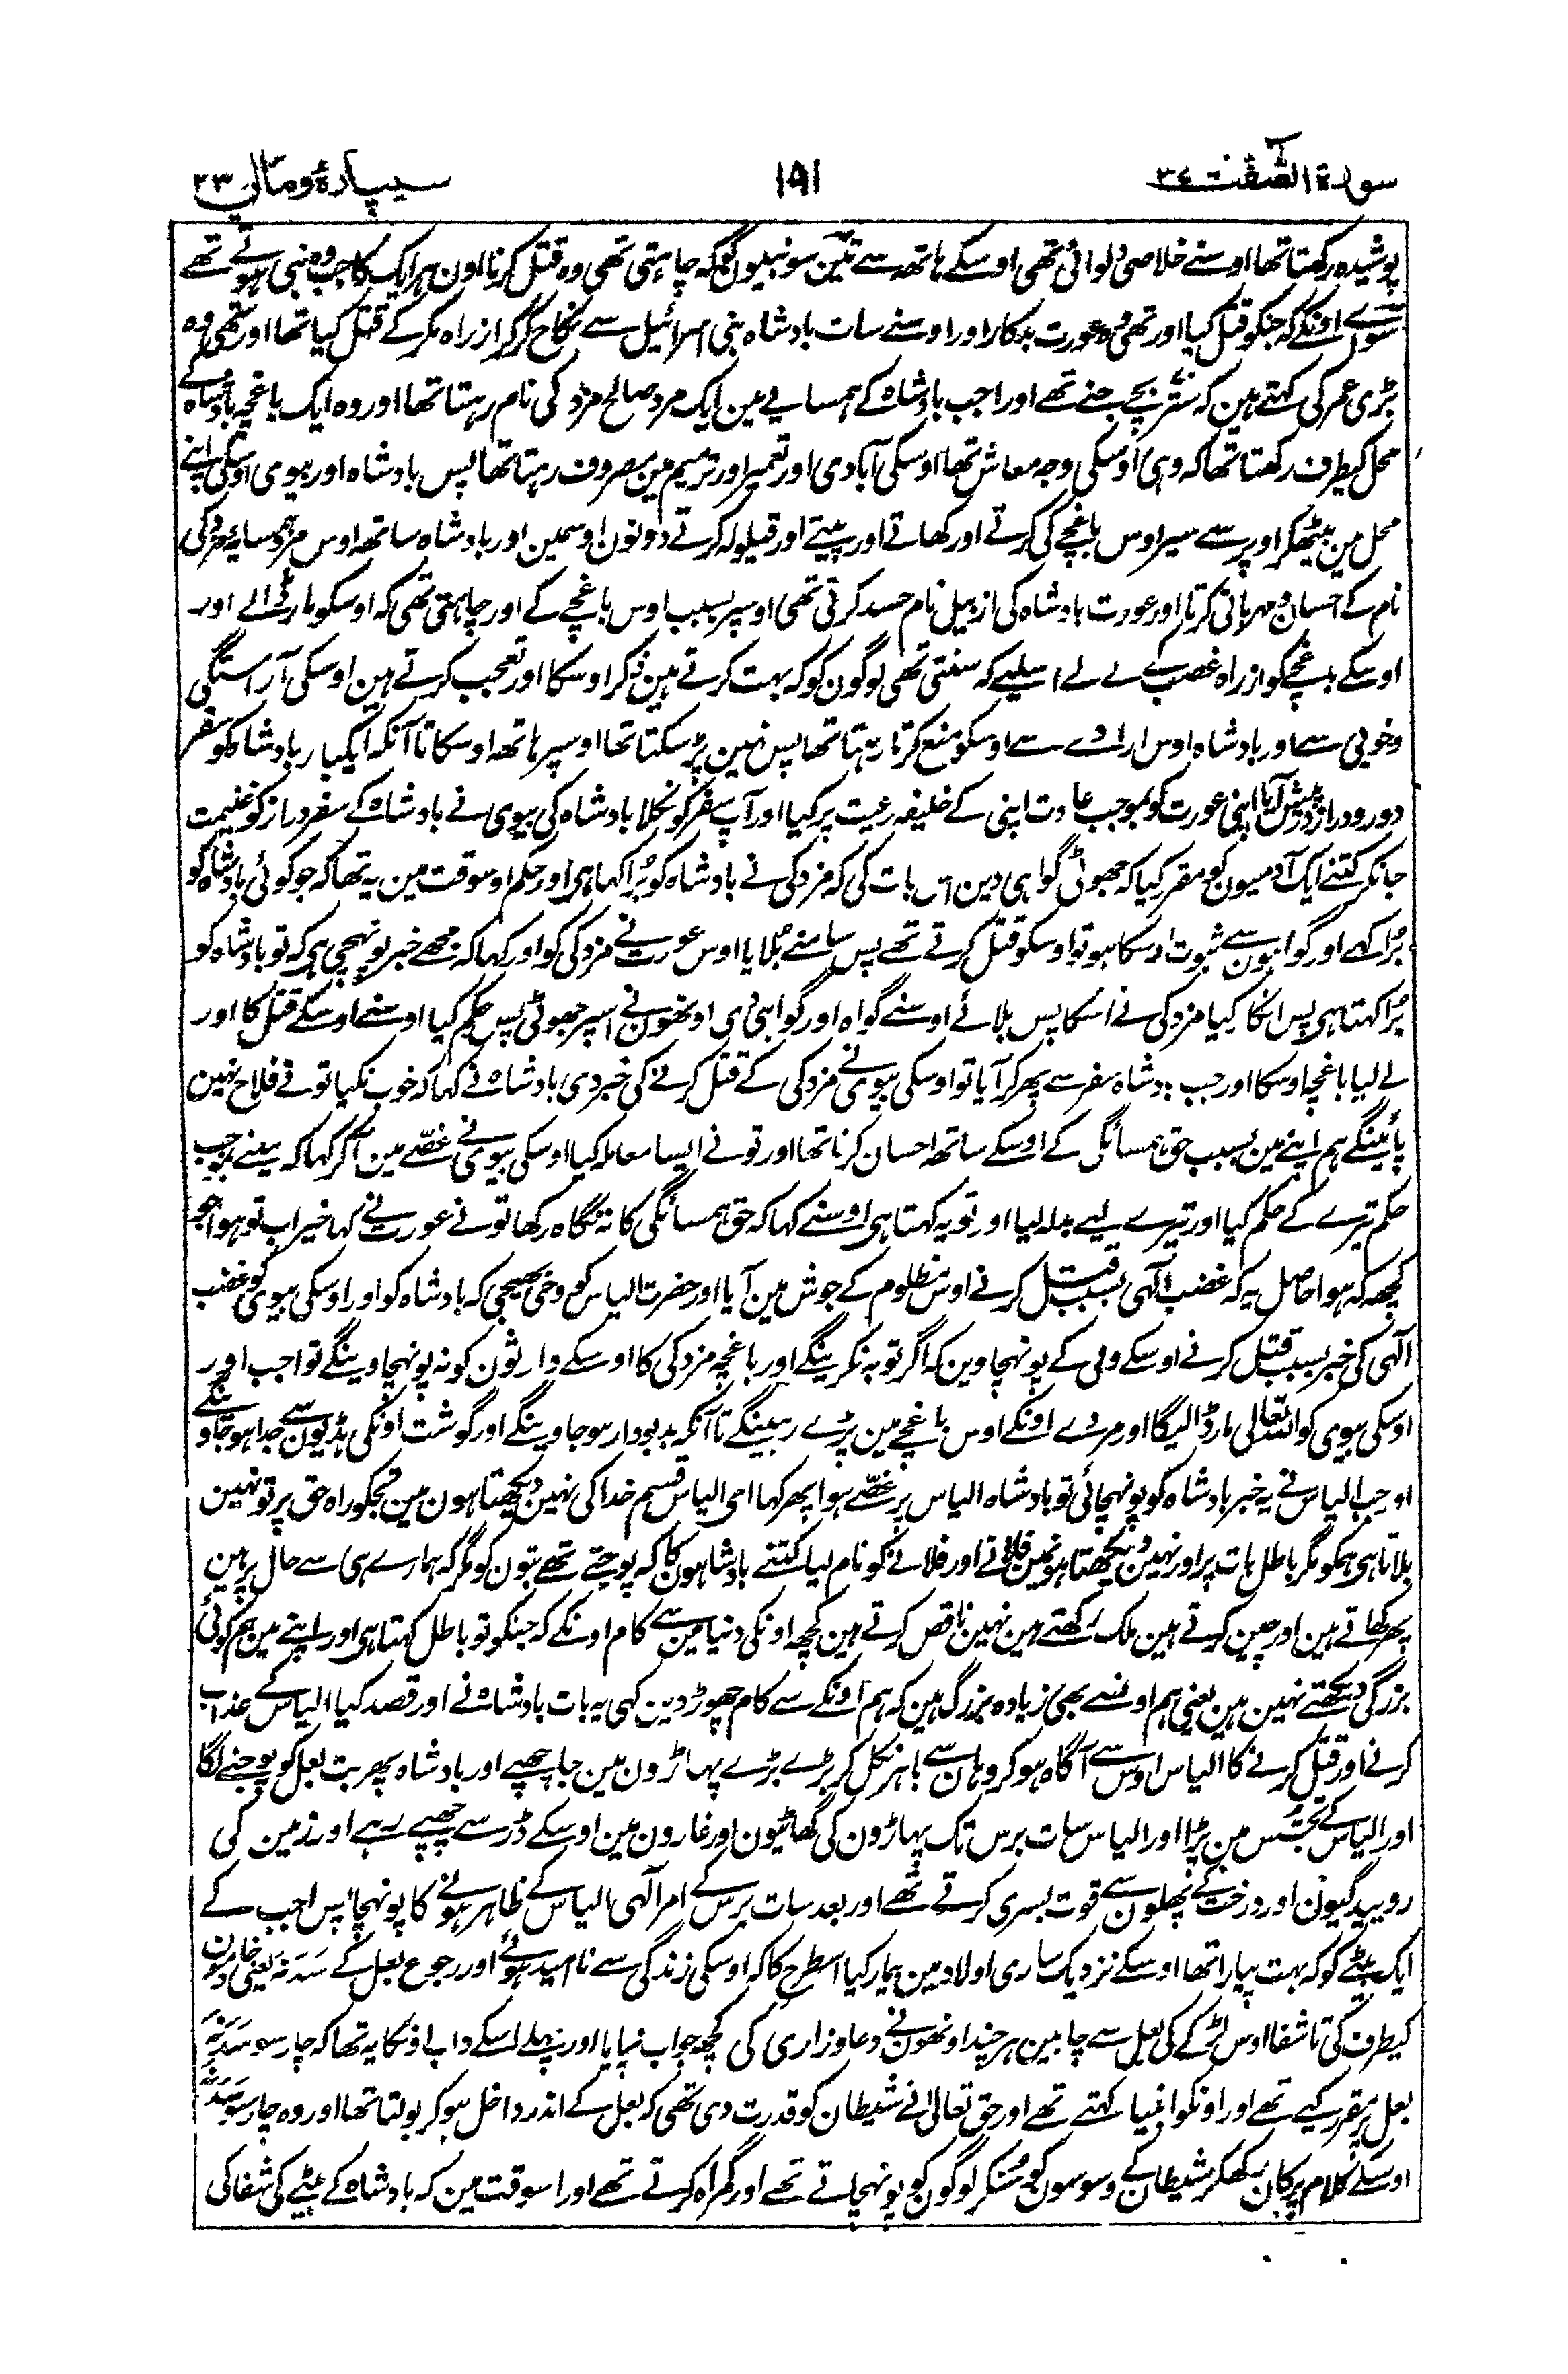 سورۃ الصّٰٓفّٰت ۳۷
۱۹۱
سیپارۂ ومالی ۲۳
پوشیدہ رکھتا تھا اوسنے خلاصی دلوائی تھی اوسکے ہاتھہ سے تین سو نبیون کو کہ چاہتی تھی وہ قتل کرنا اون ہر ایک کا جب وہ نبی ہوتے تھے
سوائے اونکے کہ جنکو قتل کیا اور تھی وہ عورت بدکار اور اوسنے سات بادشاہ بنی اسرائیل سے نکاح کر کر از راہ مکر کے قتل کیا تھا اور تھی وہ
بڑی عمر کی کہتے ہین کہ ستر بچے جنے تھے اور اجب بادشاہ کے ہمسایے مین ایک مرد صالح مزدکی نام رہتا تھا اور وہ ایک باغچہ بادشاہ کے
محل کیطرف رکھتا تھا کہ وہی اوسکی وجہ معاش تھا اوسکی آبادی اور تعمیر اور ترمیم مین مصروف رہتا تھا پس بادشاہ اور بیوی اوسکی اپنے
محل مین بیٹھکر اوپر سے سیر اوس باغچے کی کرتے اور کھاتے اور پیتے اور قیلولہ کرتے دونون اوسمین اور بادشاہ ساتھہ اوس مرد ہمسایہ مزدکی
نام کے احسان و مہربانی کرتا اور عورت بادشاہ کی ازبیل نام حسد کرتی تھی اوسپر بسبب اوس باغچے کے اور چاہتی تھی کہ اوسکو مار ڈالے اور
اوسکے باغچے کو از راہ غصب کے لے لے اسلیے کہ سنتی تھی لوگون کو کہ بہت کرتے ہین ذکر اوسکا اور تعجب کرتے ہین اوسکی آراستگی
و خوبی سے اور بادشاہ اوس ارادے سے اوسکو منع کرتا رہتا تھا پس نہین پڑ سکتا تھا اوسپر ہاتھہ اوسکا تا آنکہ ایکبار بادشاہ کو سفر
دور و دراز درپیش آیا اپنی عورت کو بموجب عادت اپنی کے خلیفہ رعیت پر کیا اور آپ سفر کو نکلا بادشاہ کی بیوی نے بادشاہ کے سفر دراز کو غنیمت
جانکر کتنے ایک آدمیون کو مقرر کیا کہ جھوٹی گواہی دین اس بات کی کہ مزدکی نے بادشاہ کو بُرا کہا ہی اور حکم اوسوقت مین یہ تھا کہ جو کوئی بادشاہ کو
بُرا کہے اور گواہون سے ثبوت اوسکا ہو تو اوسکو قتل کرتے تھے پس سامنے بُلایا اوس عورت نے مزدکی کو اور کہا کہ مجھے خبر پونہچی ہی کہ تو بادشاہ کو
بُرا کہتا ہی پس انکار کیا مزدکی نے اسکا پس بلائے اوسنے گواہ اور گواہی دی اونھون نے اسپر جھوٹی پس حکم کیا اوسنے اوسکے قتل کا اور
لے لیا باغچہ اوسکا اور جب بادشاہ سفر سے پھر کر آیا تو اوسکی بیوی نے مزدکی کے قتل کرنے کی خبر دی بادشاہ نے کہا کہ خوب نکیا تونے فلاح نہین
پائینگے ہم اپنے مین بسبب حق ہمسائگی کے اوسکے ساتھہ احسان کرنا تھا اور تونے ایسا معاملہ کیا اوسکی بیوی نے غصّے مین آکر کہا کہ مینے بموجب
حکم تیرے کے حکم کیا اور تیرے لیے بدلہ لیا اور تو یہ کہتا ہی اوسنے کہا کہ حق ہمسائگی کا نہ نگاہ رکھا تونے عورت نے کہا خیر اب تو ہوا جو
کچھہ کہ ہوا حاصل یہ کہ غضب الٓہی بسبب قتل کرنے اوس مظلوم کے جوش مین آیا اور حضرت الیاس کو وحی بھیجی کہ بادشاہ کو اور اوسکی بیوی کو غضب
الٓہی کی خبر بسبب قتل کرنے اوسکے ولی کے پونہچاوین کہ اگر توبہ نکرینگے اور باغچہ مزدکی کا اوسکے وارثون کو نہ پونہچاوینگے تو اجب اور
اوسکی بیوی کو اللہ تعالی مار ڈالیگا اور مردے اونکے اوس باغچے مین پڑے رہینگے تا آنکہ بدبودار ہوجاوینگے اور گوشت اونکی ہڈیون سے جدا ہوجاوینگے
اوجب الیاس نے یہ خبر بادشاہ کو پونہچائی تو بادشاہ الیاس پر غصّے ہوا پھر کہا ای الیاس قسم خدا کی نہین دیکھتا ہون مین تجکو راہ حق پر تو نہین
بلاتا ہی ہمکو مگر باطل بات پر اور نہین دیکھتا ہونمین فلانے اور فلانے کو نام لیا کتنے بادشاہون کا کہ پوجتے تھے بتون کو مگر کہ ہمارے ہی سے حال پر ہین
پھر کھاتے ہین اور چین کرتے ہین ملک رکھتے ہین نہین ناقص کرتے ہین کچھہ اونکی دنیا مین سے کام اونکے کہ جنکو تو باطل کہتا ہی اور اپنے مین ہم کوئی
بزرگی دیکھتے نہین ہین یعنی ہم اونسے بھی زیادہ بزرگ ہین کہ ہم اونکے سے کام چھوڑ دین کہی یہ بات بادشاہ نے اور قصد کیا الیاس کے عذاب
کرنے اور قتل کرنے کا الیاس اوس سے آگاہ ہوکر وہان سے باہر نکل کر بڑے بڑے پہاڑون مین جا چھپے اور بادشاہ پھر بت بعل کو پوجنے لگا
اور الیاس کے تجسّس مین پڑا اور الیاس سات برس تک پہاڑون کی گھاٹیون اور غارون مین اوسکے ڈر سے چھپے رہے اور زمین کی
روییدگیون اور درخت کے پھلون سے قوت بسری کرتے تھے اور بعد سات برس کے امر الٓہی الیاس کے ظاہر ہونے کا پونہچا پس اجب کے
ایک بیٹے کو کہ بہت پیارا تھا اوسکے نزدیک ساری اولاد مین بیمار کیا اسطرح کا کہ اوسکی زندگی سے ناامید ہوئے اور رجوع بعل کے سَدَنہ یعنی خادمون
کیطرف کی تا شفا اوس لڑکے کی بعل سے چاہین ہرچند اونھون نے دعا و زاری کی کچھہ جواب نپایا اور پہلے اسکے داب اونکا یہ تھا کہ چار سو سَدَنَہ
بعل پر مقرر کیے تھے اور اونکو انبیا کہتے تھے اور حق تعالی نے شیطان کو قدرت دی تھی کہ بعل کے اندر داخل ہوکر بولتا تھا اور وہ چار سو سَدَنَہ
اوسکے کلام پر کان رکھکر شیطان کے وسوسون کو سُنکر لوگون کو پونہچاتے تھے اور گمراہ کرتے تھے اور اسوقت مین کہ بادشاہ کے بیٹے کی شفا کی